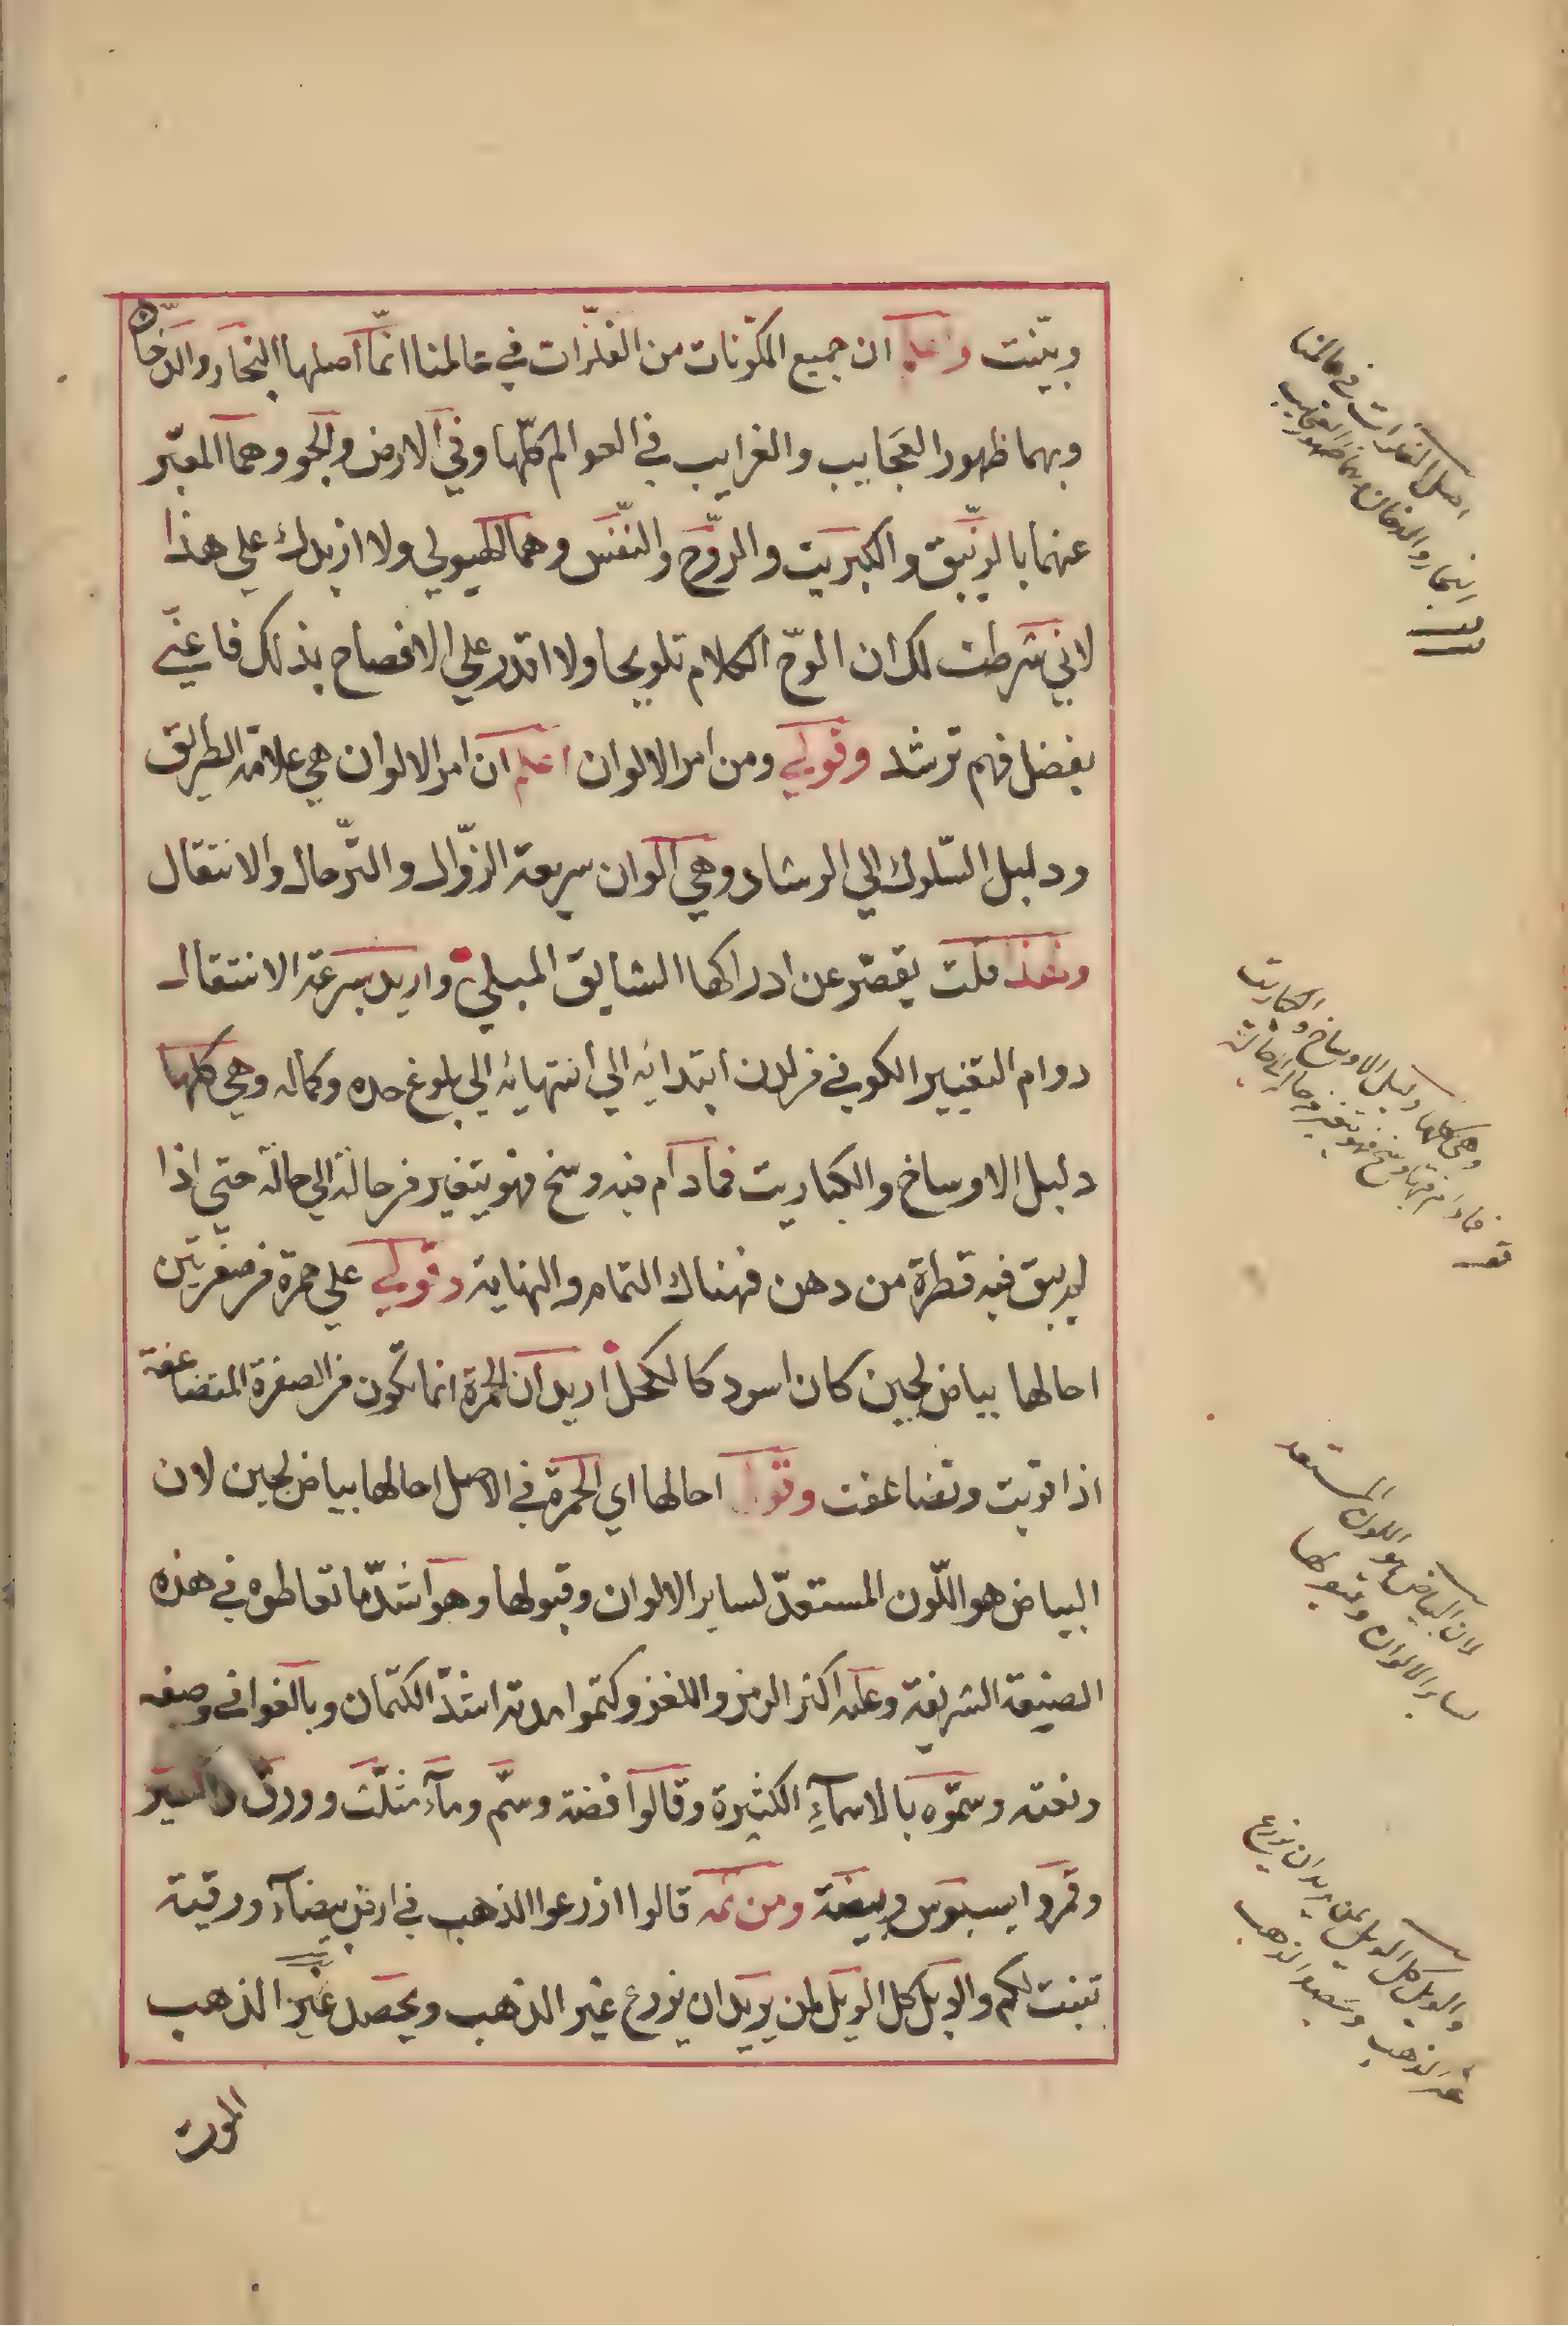 وبيّنت واعلم ان جميع المكوّنات من الفلزّات في عالمنا انمّا اصلها البخار والدّخان
وبهما ظهور العجايب والغرايب في العوالم كلّها وفي الارض والجو وهما المعبّر
عنهما بالزيبق والكبريت والرّوح والنّفس وهما الهيولي ولا ازيدك علي هذا
لاني شرطت لك ان الوّح الكلام تلويحا ولا اقدر علي الافصاح بذلك فاعنّي
بفضل فهم ترشد وقولي ومن امر الالوان اعلم ان امر الالوان هي علامة الطريق
ودليل السّلوك الي الرشاد وهي الوان سريعة الزّوال والتّرحال والانتقال
قلت يقصّر عن ادراكها السايق المبلي واريد بسرعة الانتقال
دوام التغيير الكوني من لدن ابتدائه الي انتهائه الي بلوغ حده وكماله وهي كلها
دليل الاوساخ والكباريت فمادام فيه وسخ فهو يتغير من حالة الي حالة حتي اذا
لم يبق فيه قطرة من دهن فهناك التمام والنهاية وقولي علي حمرة من صفرتين
احالها بياض لجين كان اسود كالكحل اريد ان الحمرة انما تكون من الصفرة المتضاعفة
اذا قويت وتضاعفت وقول احالها اي الحمرة في الاصل احالها بياض لجين لان
البياض هو اللّون المستعدّ لساير الالوان وقبولها وهو اشدّ ما تعاطوه في هذه
الصنيعة الشريفة وعليه اكثر الرمز واللغز وكتموا مدته اشدّ الكتمان وبالغوا في وصفه
ونعته وسمّوه بالاسماءِ الكثيرة وقالوا فضة وسمّ وماء مثلّث وورق واكسير
وقمر وبيضة ومن ثمه قالوا ازرعوا الذهب في ارض بيضاء ورقية
تبنت لكم والويل كل الويل لمن يريد ان يزرع غير الذهب ويحصد غير الذهب
المورث
اصل الفلزات في عالمنا
البخار والدخان وبهما ظهور العجايب
وهي كلها دليل الاوساخ والكباريت
فمادام فيها وسخ فهو يتغير من حالة الي حالة
لان البياض هو اللون المستعد
لساير الالوان وقبولها
والويل كل الويل لمن يريد ان يزرع
غير الذهب ويحصد الذهب